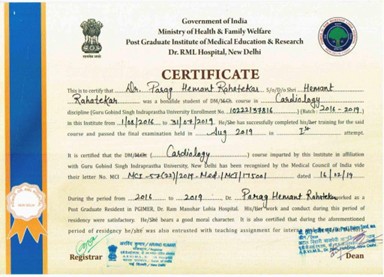 Government of India
Ministry of Health & Family Welfare
Post Graduate Institute of Medical Education & Research
Dr. RML Hospital, New Delhi
CERTIFICATE
This is to certify that Dr. Parag Hemant Rahatekar S/o/D/o Shri Hemant
Rahatekar was a bonafide student of DM/MCh course in Cardiology
discipline (Guru Gobind Singh Indraprastha University Enrolment No. (Batch 2016 - 2019)
in this Institute from 1/08/2016 to 31/07/2019 He/She has successfully completed his/her training for the said
course and passed the final examination held in Aug 2019 in Ist attempt.
It is certified that the DM/MCh (Cardiology) course imparted by this Institute in affiliation
with Guru Gobind Singh Indraprastha University, New Delhi has been recognized by the Medical Council of India vide
their letter No. MCI dated
During the period from 2016 to 2019 Dr Parag Hemant Rahatekar worked as a
Post Graduate Resident in PGIMER, Dr. Ram Manohar Lohia Hospital. His/her work and conduct during this period of
residency were satisfactory. He/She bears a good moral character. It is also certified that during the aforementioned
period of residency he/she was also entrusted with teaching assignment for
Registrar
Dean